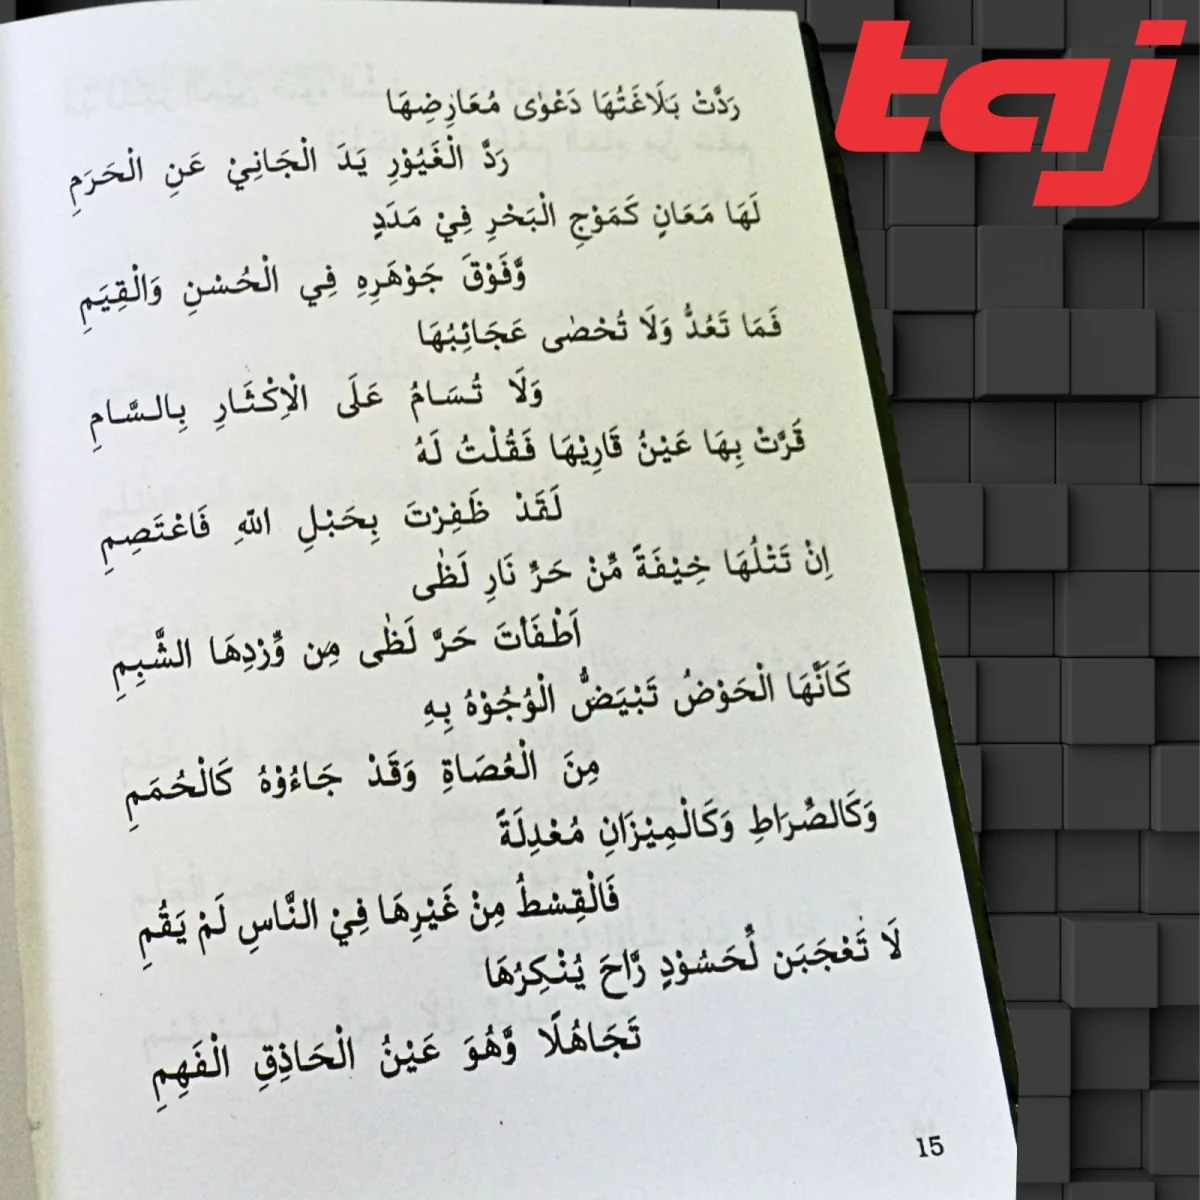 taj
رَدَّتْ بَلَاغَتُهَا دَعْوٰى مُعَارِضِهَا
رَدَّ الْغَيُوْرِ يَدَ الْجَانِيْ عَنِ الْحَرَمِ
لَهَا مَعَانٍ كَمَوْجِ الْبَحْرِ فِيْ مَدَدٍ
وَّفَوْقَ جَوْهَرِهِ فِي الْحُسْنِ وَالْقِيَمِ
فَمَا تَعُدُّ وَلَا تُحْصٰى عَجَائِبُهَا
وَلَا تُسَامُ عَلَى الْاِكْثَارِ بِالسَّامِ
قَرَّتْ بِهَا عَيْنُ قَارِيْهَا فَقُلْتُ لَهُ
لَقَدْ ظَفِرْتَ بِحَبْلِ اللّٰهِ فَاعْتَصِمِ
اِنْ تَتْلُهَا خِيْفَةً مِّنْ حَرِّ نَارِ لَظٰى
اَطْفَاْتَ حَرَّ لَظٰى مِن وِّرْدِهَا الشَّبِمِ
كَاَنَّهَا الْحَوْضُ تَبْيَضُّ الْوُجُوْهُ بِهِ
مِنَ الْعُصَاةِ وَقَدْ جَاءُوْهُ كَالْحُمَمِ
وَكَالصِّرَاطِ وَكَالْمِيْزَانِ مُعْدِلَةً
فَالْقِسْطُ مِنْ غَيْرِهَا فِيْ النَّاسِ لَمْ يَقُمِ
لَا تَعْجَبَن لِّحَسُوْدٍ رَّاحَ يُنْكِرُهَا
تَجَاهُلًا وَّهُوَ عَيْنُ الْحَاذِقِ الْفَهِمِ
15